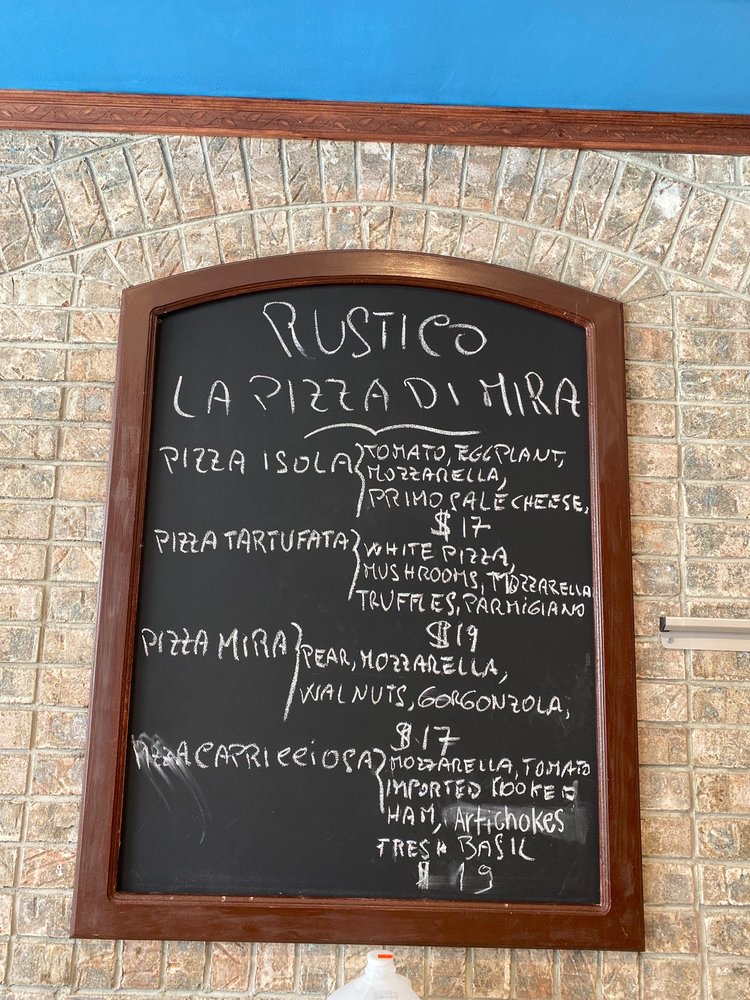 RUSTICO
LA PIZZA DI MIRA
PIZZA ISOLA
TOMATO, EGGPLANT,
MOZZARELLA,
PRIMO SALE CHEESE,
$17
PIZZA TARTUFATA
WHITE PIZZA,
MUSHROOMS, MOZZARELLA
TRUFFLES, PARMIGIANO
$19
PIZZA MIRA
PEAR, MOZZARELLA,
WALNUTS, GORGONZOLA,
$17
PIZZA CAPRICCIOSA
MOZZARELLA, TOMATO
IMPORTED KOOKED
HAM, Artichokes
FRESH BASIL
$19